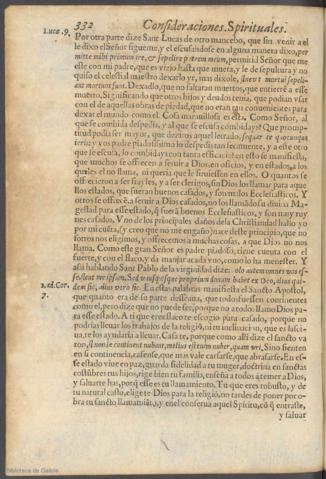 332 Consideraciones Spirituales.
Luca .9. Por otra parte dize Sant Lucas de otro mancebo, que sin venir a el
le dixo el Señor sigueme, y el escusandose en alguna manera dixo, per
mitte mihi primum ire, & sepelire patrem meum, permitid Señor que me
esté con mi padre, que es viejo hasta que muera, y le de sepultura y no
quiso el celestial maestro dexarlo yr, mas dixole, sinete mortui sepeli-
ant mortuos suos. Dexadlo, que no faltaran muertos, que entierré a esse
muerto, Significando que otros hijos y deudos tenia, que podian vsar
con el de aquellas obras de piedad, que no eran tan conuenientes para
dexar el mundo como el. Cosa marauillosa es esta, Como Señor, al
que se combida despedis, y al que se escusa combidays? Que promp-
titud podia ser mayor, que dezir os aquel letrado, sequar te quocunque
ieris: y vos padre piadosissimo lo despedis tan secamente, y a este otro
que se escusa, lo combidays con tanta efficacia? en esto se manifiesta,
que muchos se offrecen a seruir a Dios, en officios, y en estados, a los
quales el no llama, ni queria que le siruiessen en ellos. O quantos se
offrecieron a ser frayles, y a ser clerigos, sin Dios los llamar para aque
llos estados, que fueran buenos casados, y fueron los Ecclesiasticos. Y
otros se offrecē, a seruir a Dios casados, no los llamādo su diuina Ma-
gestad para esse estado, q̃ fuerā buenos Ecclesiasticos, y son muy ruy
nes casados. Vno de los principales daños de la Christiandad hasta yo
por mi culpa, (y creo que no me engaño) nace deste principio, que no
sotros nos eligimos, y offrecemos a muchas cosas, a que Dios no nos
llama. Como este gran Señor es padre piadoso, tiene cuenta con el
fuerte, y con el flaco, y da manjar a cada vno, como lo ha menester. Y
assi hablando Sant Pablo de la virginidad dize: volo autem omnes vos es-
1.ad.Cor. se sicut me ipsum, Sed vnusquisque proprium donum habet ex Deo, alius qui-
7. dem sic, alius vero sic. En estas palabras manifiesta el Sancto Apostol,
que quanto era de su parte desseaua, que todos fuessen continentes
como el, pero dize que no puede ser, porque no a todos llamo Dios pa-
ra esse estado. A ti que eres flaco te escogio para casado, porque no
podrias lleuar los trabajos de la religiō, ni tu inclinacion, que es lasci-
ua, te los ayudaria a lleuar. Casate, porque como alli dize el sancto va
ron, quod si non se continent nubant, melius est enim nuber, quam vri. Sino sienten
en si continencia, casense, que mas vale casarse, que abrasarse. En es-
se estado viue en paz, guarda fidelidad a tu muger, doctrina en sanctas
costūbres tus hijos, rige bien tu familia, enseña a todos a temer a Dios,
y saluarte has, porq̃ esse es tu llamamiento. Tu que eres robusto, y de
tu natural casto, eligete Dios para la religiō, no tardes de poner por o-
bra tu sancto llamamiēto, y en el conserua aquel Spiritu, cō q̃ entraste,
y saluar
Biblioteca de Galicia